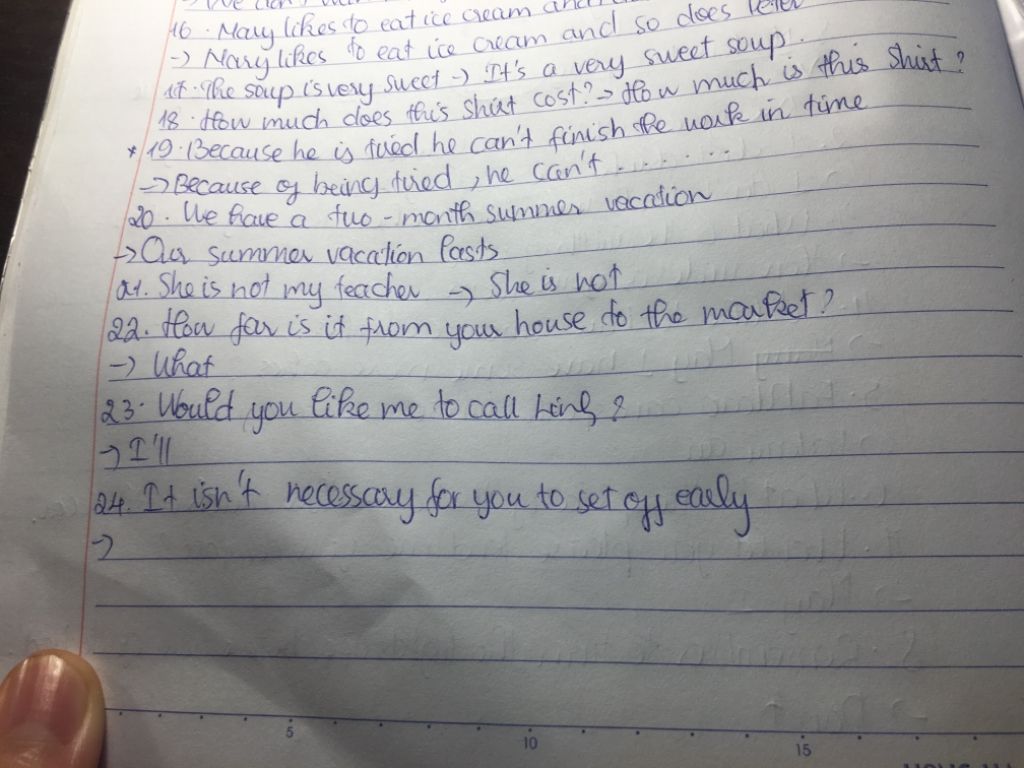 We don't
16. Mary likes to eat ice cream and
-> Mary likes to eat ice cream and so does Peter
17. The soup is very sweet -> It's a very sweet soup.
18. How much does this shirt cost? -> How much is this shirt?
* 19. Because he is tired he can't finish the work in time
-> Because of being tired, he can't . . . . . . .
20. We have a two-month summer vacation
-> Our summer vacation lasts
21. She is not my teacher -> She is not
22. How far is it from your house to the market?
-> What
23. Would you like me to call Linh?
-> I'll
24. It isn't necessary for you to set off early
->
5 10 15